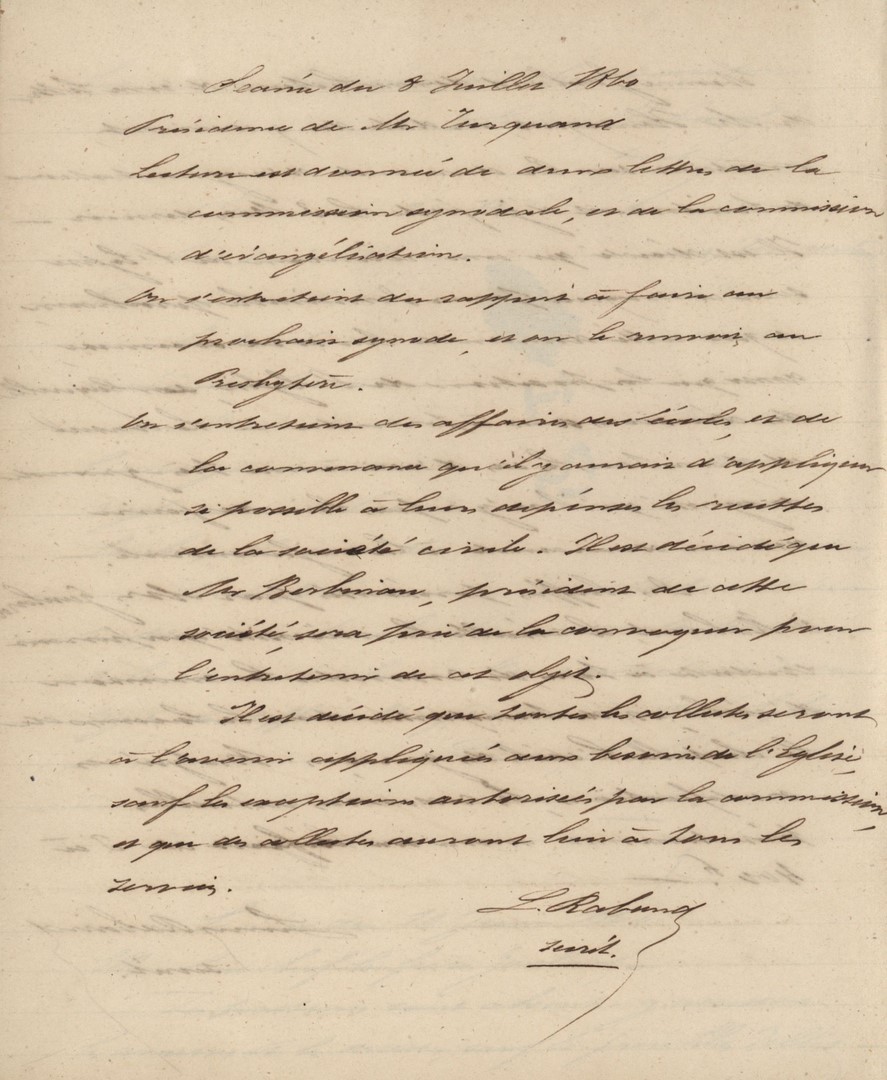 Séance du 8 Juillet 1860
Présidence de Mr Turquand
Lecture est donnée de deux lettres de la
commission synodale, et de la commission
d'évangélisation.
On s'entretient du rapport à faire au
prochain synode, et on le renvoie au
Presbytère.
On s'entretient des affaires des écoles, et de
la convenance qu'il y aurait d'appliquer
si possible à leurs dépenses les recettes
de la société civile. Il est décidé que
Mr , président de cette
société, sera prié de la convoquer pour
l'entretenir de cet objet.
Il est décidé que toutes les collectes seront
à l'avenir appliquées aux besoins de l'Eglise,
sauf les exceptions autorisées par la commission,
et que des collectes auront lieu à tous les
services.
L. Rabaud
secrét.